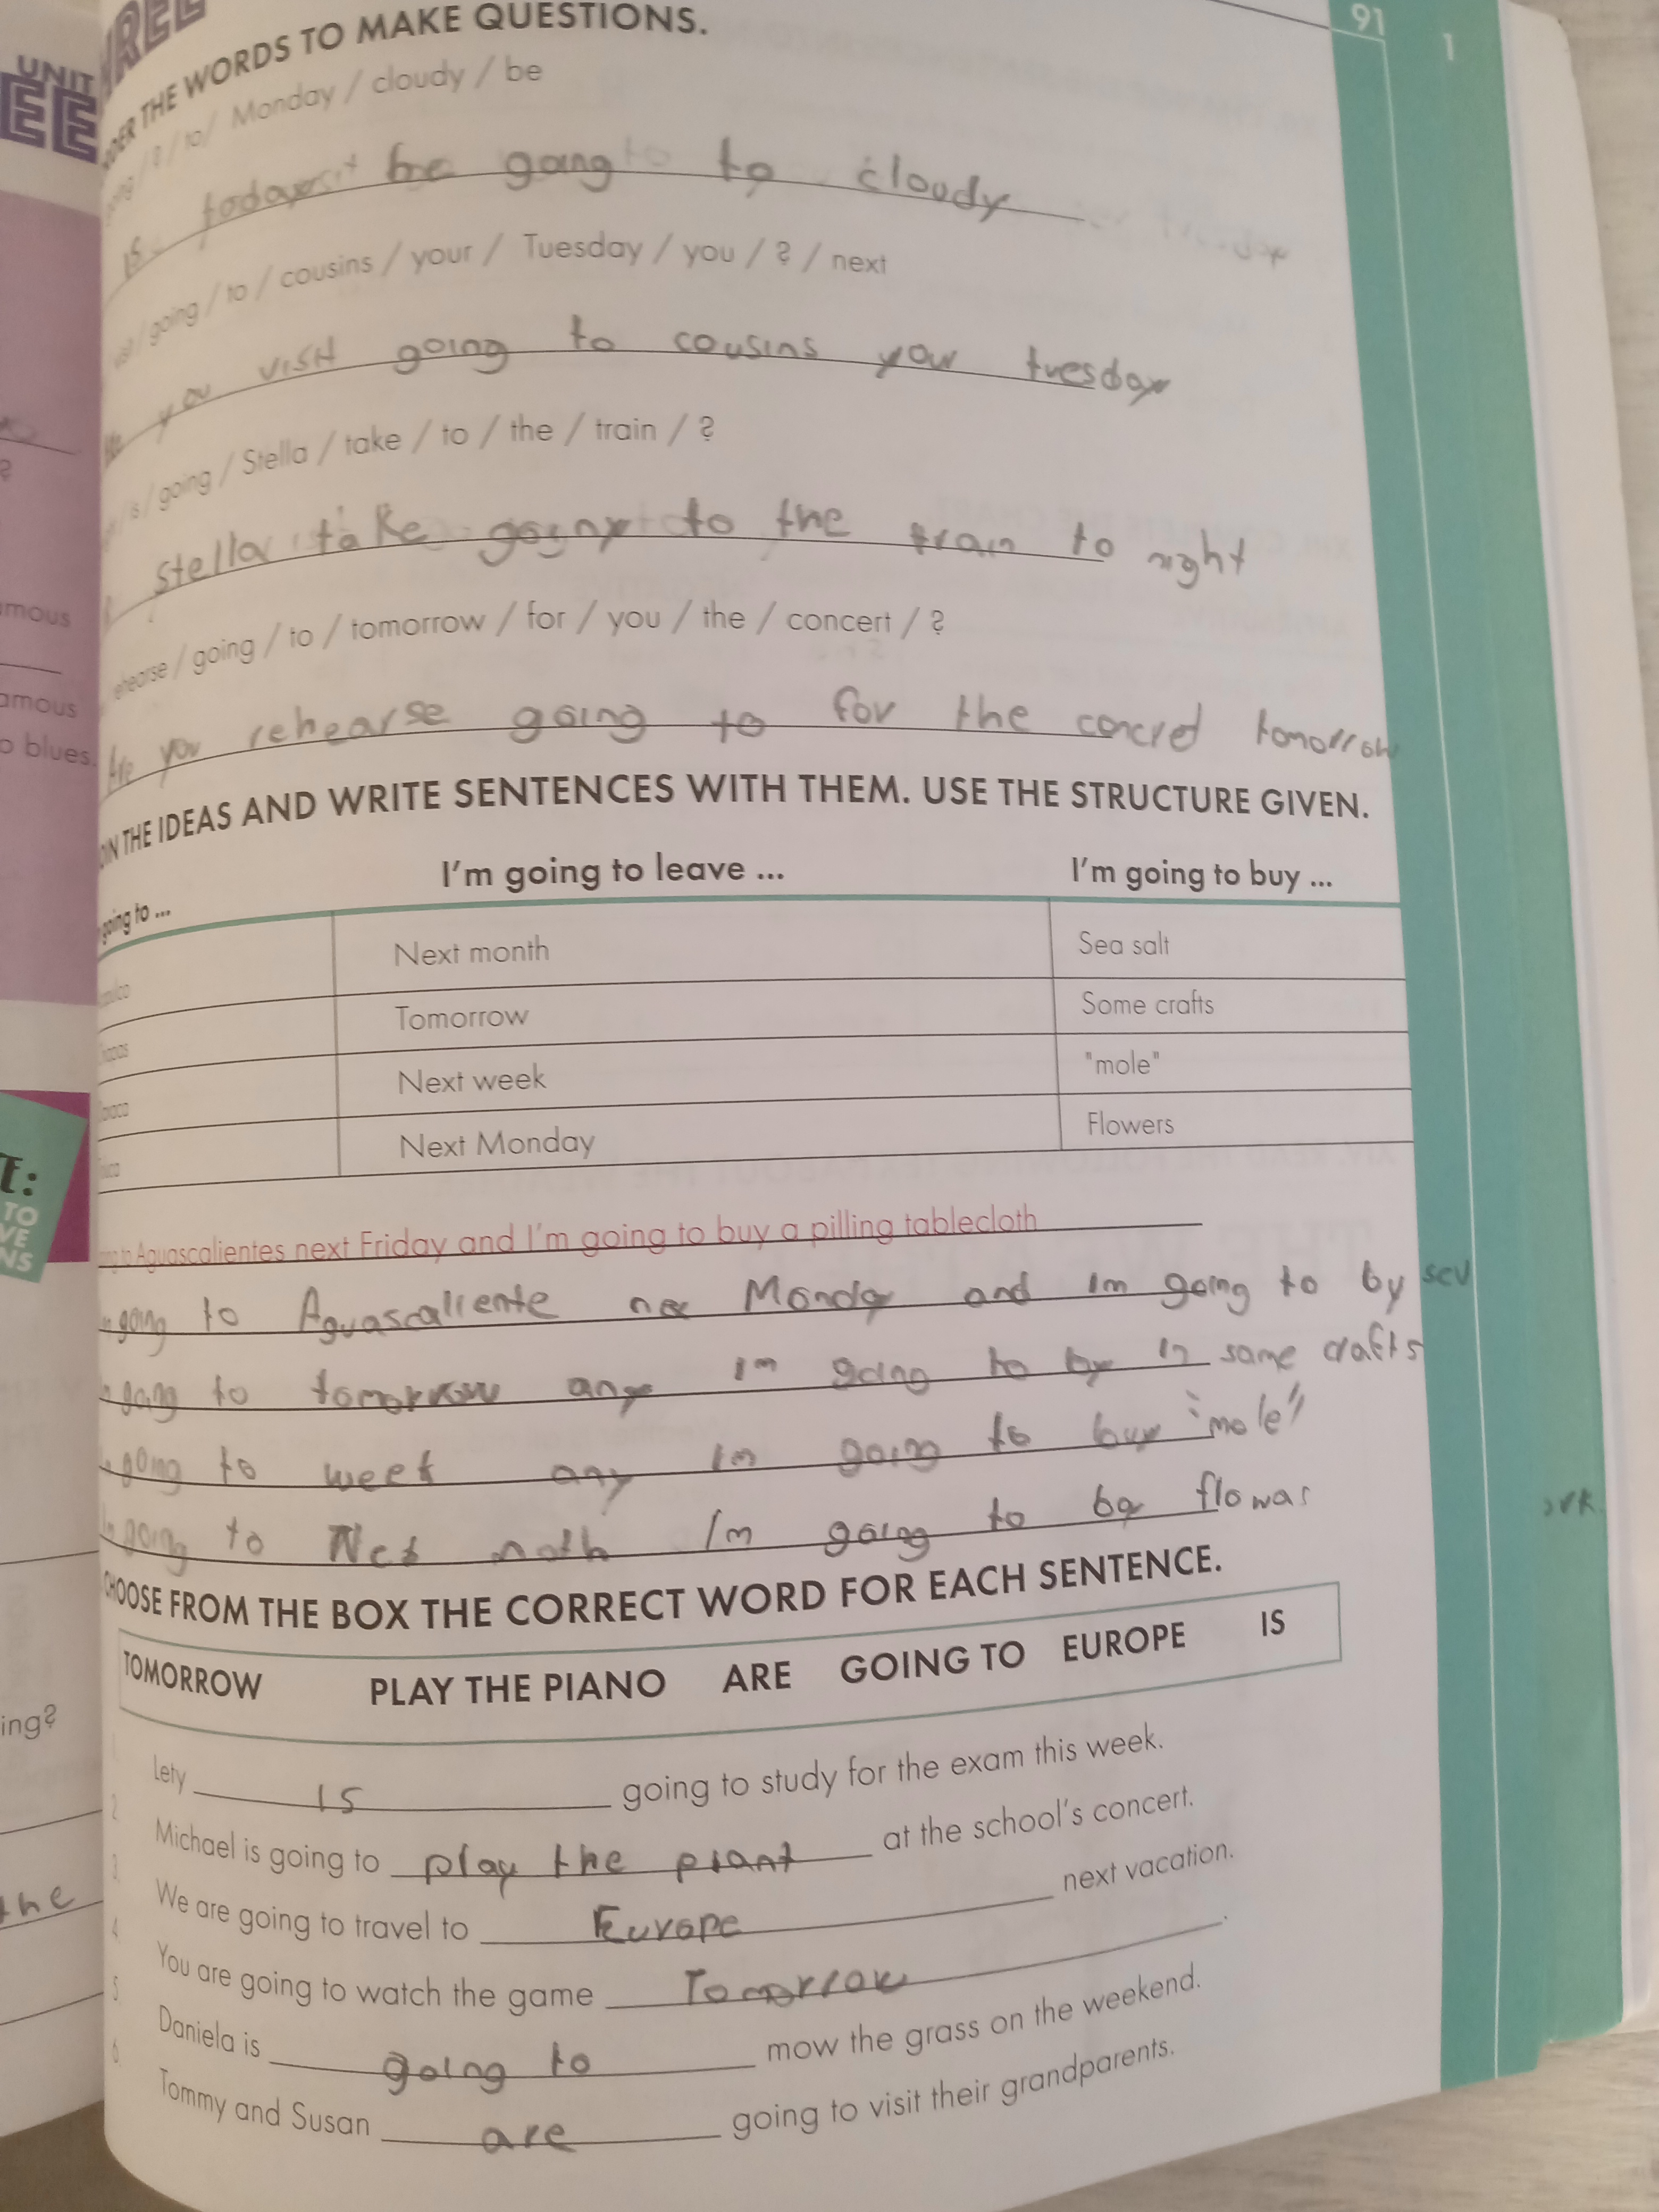 91
1
UNIT
THE WORDS TO MAKE QUESTIONS.
/ ? / to / Monday / cloudy / be
is be gong to cloudy
/ going / to / cousins / your / Tuesday / you / ? / next
you going to cousins your tuesday
/ is / going / Stella / take / to / the / train / ?
stella take to the train to night
/ going / to / tomorrow / for / you / the / concert / ?
you rehearse going to for the concret tomorrow
THE IDEAS AND WRITE SENTENCES WITH THEM. USE THE STRUCTURE GIVEN.
going to ... I'm going to leave ... I'm going to buy ...
Next month Sea salt
Tomorrow Some crafts
Next week "mole"
Next Monday Flowers
Aguascalientes next Friday and I'm going to buy a pilling tablecloth
going to Aguascaliente and Im going to by
to tomorrow Im going to same crafts
going to week any Im going to buy "mole"
going to Im going to
CHOOSE FROM THE BOX THE CORRECT WORD FOR EACH SENTENCE.
TOMORROW PLAY THE PIANO ARE GOING TO EUROPE IS
1 Lety is going to study for the exam this week.
2 Michael is going to play the piant at the school's concert.
3 We are going to travel to Europe next vacation.
4 You are going to watch the game Tomorrow.
5 Daniela is going to mow the grass on the weekend.
6 Tommy and Susan are going to visit their grandparents.
amous
amous
o blues.
T:
TO
VE
NS
ing?
the